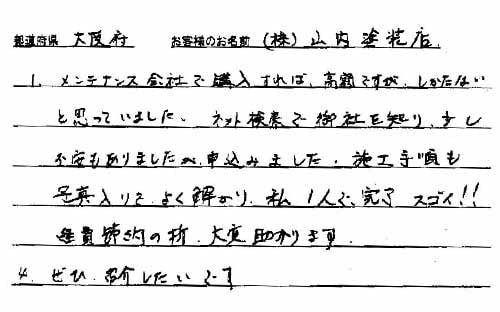 都道府県 大阪府 お客様のお名前 (株)山内塗装店.
1. メンテナンス会社で購入すれば、高額ですが、しかたない
と思っていました。ネット検索で御社を知り、少し
不安もありましたが、申込みました。施工手順も
写真入りで、よく解かり、私1人で、完了 スゴイ!!
経費節約の折、大変助かります.
4. ぜひ、紹介したいです